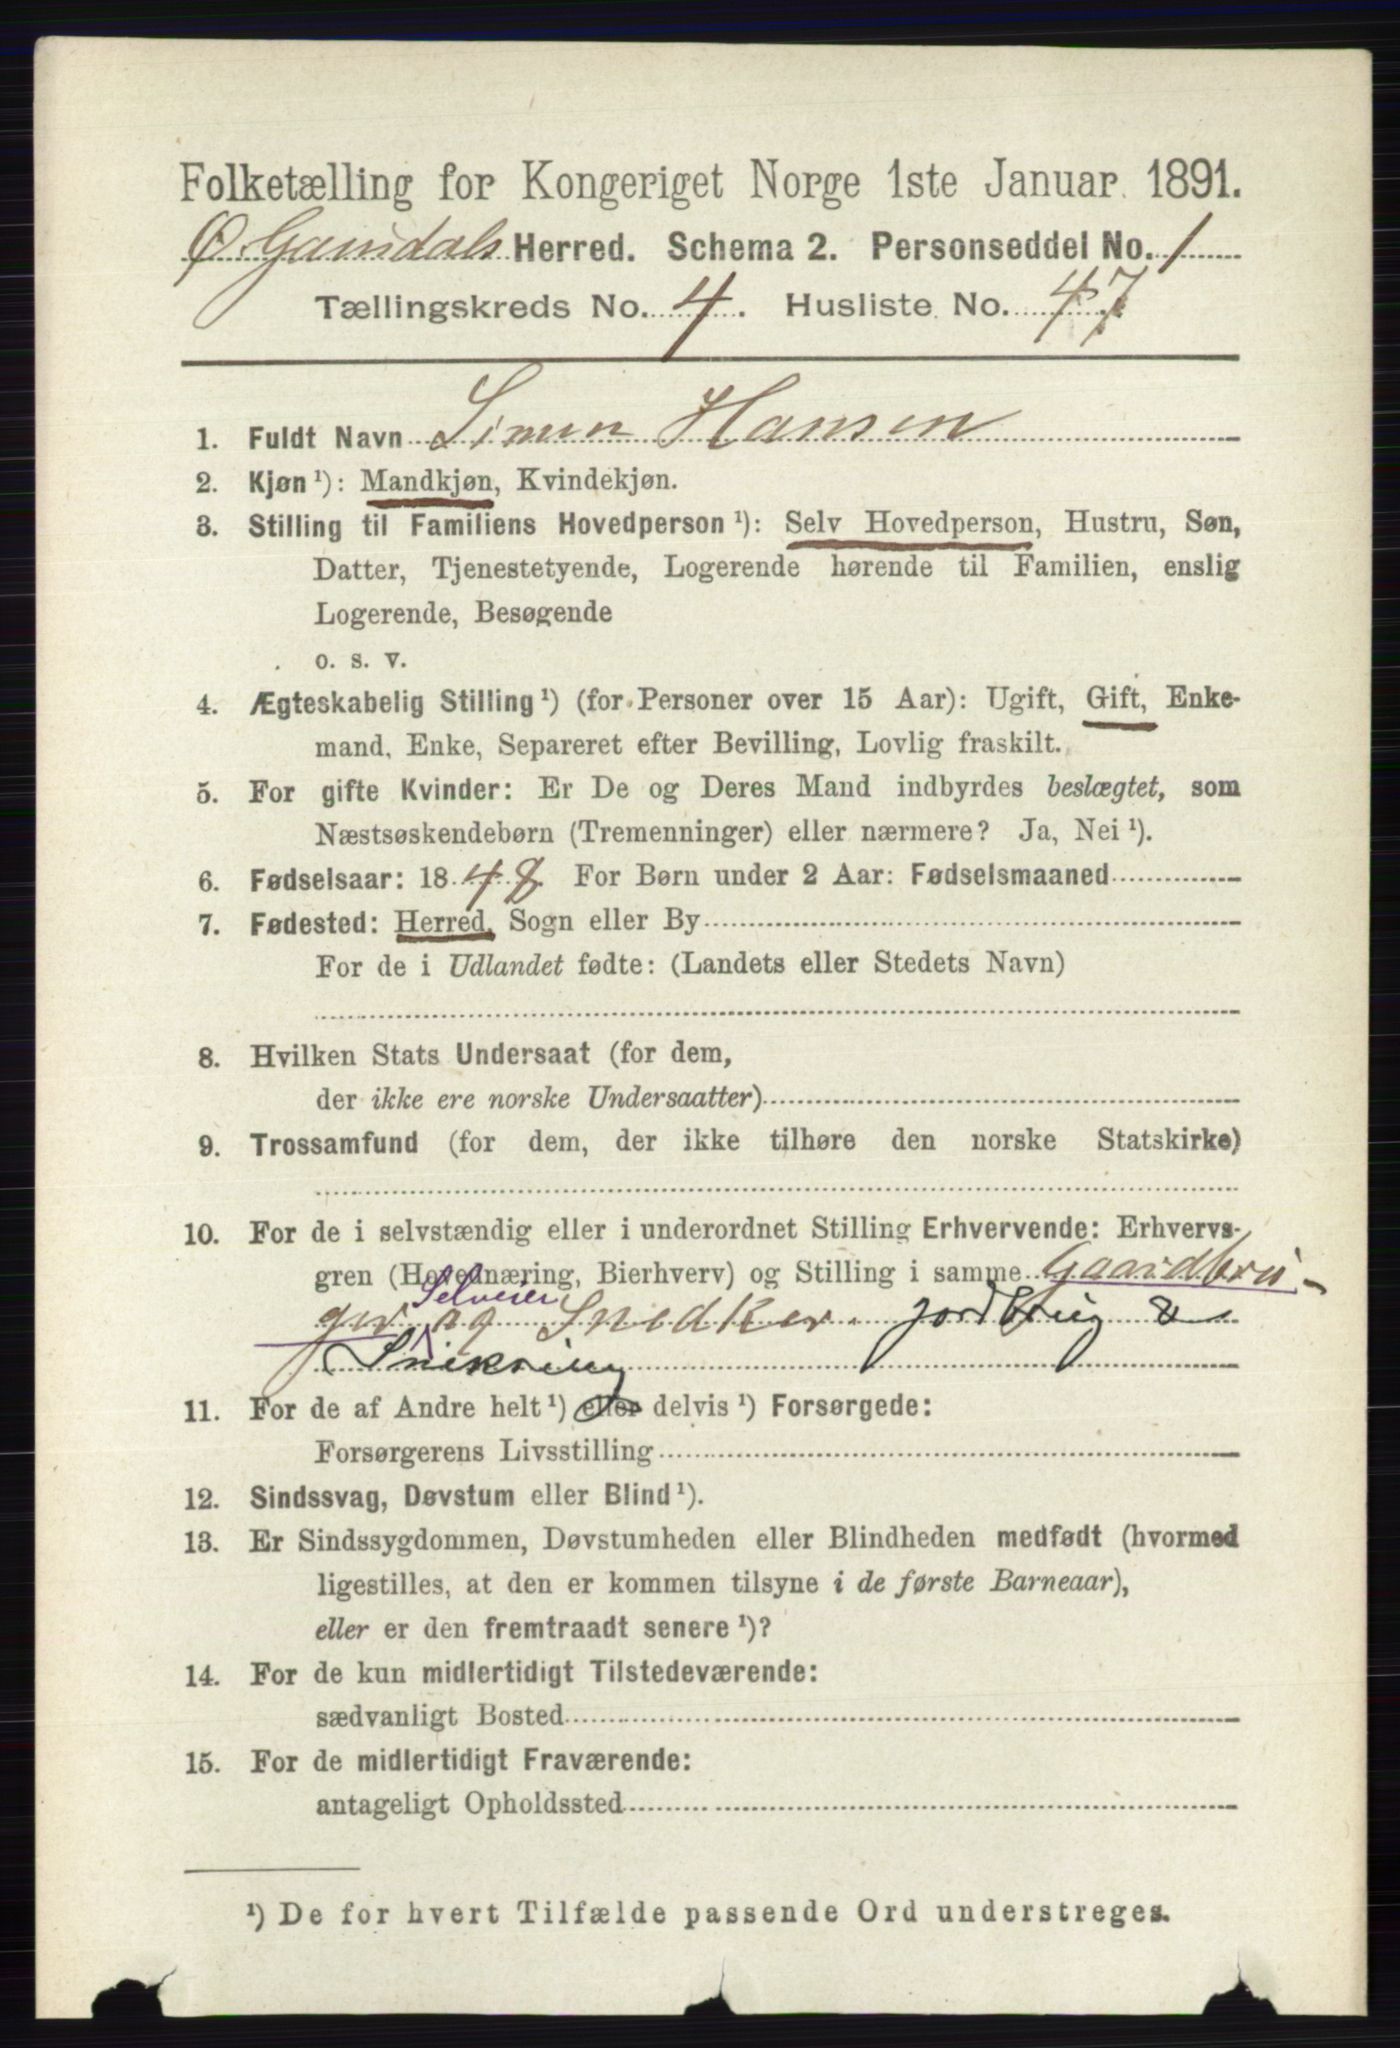 Folketælling for Kongeriget Norge 1ste Januar 1891.
Ø. Gausdals Herred. Schema 2. Personseddel No. 1
Tællingskreds No. 4. Husliste No. 47
1. Fuldt Navn Simen Hansen
2. Kjøn ¹): Mandkjøn, Kvindekjøn.
3. Stilling til Familiens Hovedperson ¹): Selv Hovedperson, Hustru, Søn,
Datter, Tjenestetyende, Logerende hørende til Familien, enslig
Logerende, Besøgende
o. s. v.
4. Ægteskabelig Stilling ¹) (for Personer over 15 Aar): Ugift, Gift, Enke-
mand, Enke, Separeret efter Bevilling, Lovlig fraskilt.
5. For gifte Kvinder: Er De og Deres Mand indbyrdes beslægtet, som
Næstsøskendebørn (Tremenninger) eller nærmere? Ja, Nei ¹).
6. Fødselsaar: 1848 For Børn under 2 Aar: Fødselsmaaned
7. Fødested: Herred, Sogn eller By
For de i Udlandet fødte: (Landets eller Stedets Navn)
8. Hvilken Stats Undersaat (for dem,
der ikke ere norske Undersaatter)
9. Trossamfund (for dem, der ikke tilhøre den norske Statskirke)
10. For de i selvstændig eller i underordnet Stilling Erhvervende: Erhvervs-
gren (Hovednæring, Bierhverv) og Stilling i samme Gaardbru-
Selveier
ger og Snedker. Jordbrug &
Snikring
11. For de af Andre helt ¹) eller delvis ¹) Forsørgede:
Forsørgerens Livsstilling
12. Sindssvag, Døvstum eller Blind ¹).
13. Er Sindssygdommen, Døvstumheden eller Blindheden medfødt (hvormed
ligestilles, at den er kommen tilsyne i de første Barneaar),
eller er den fremtraadt senere ¹)?
14. For de kun midlertidigt Tilstedeværende:
sædvanligt Bosted
15. For de midlertidigt Fraværende:
antageligt Opholdssted
¹) De for hvert Tilfælde passende Ord understreges.